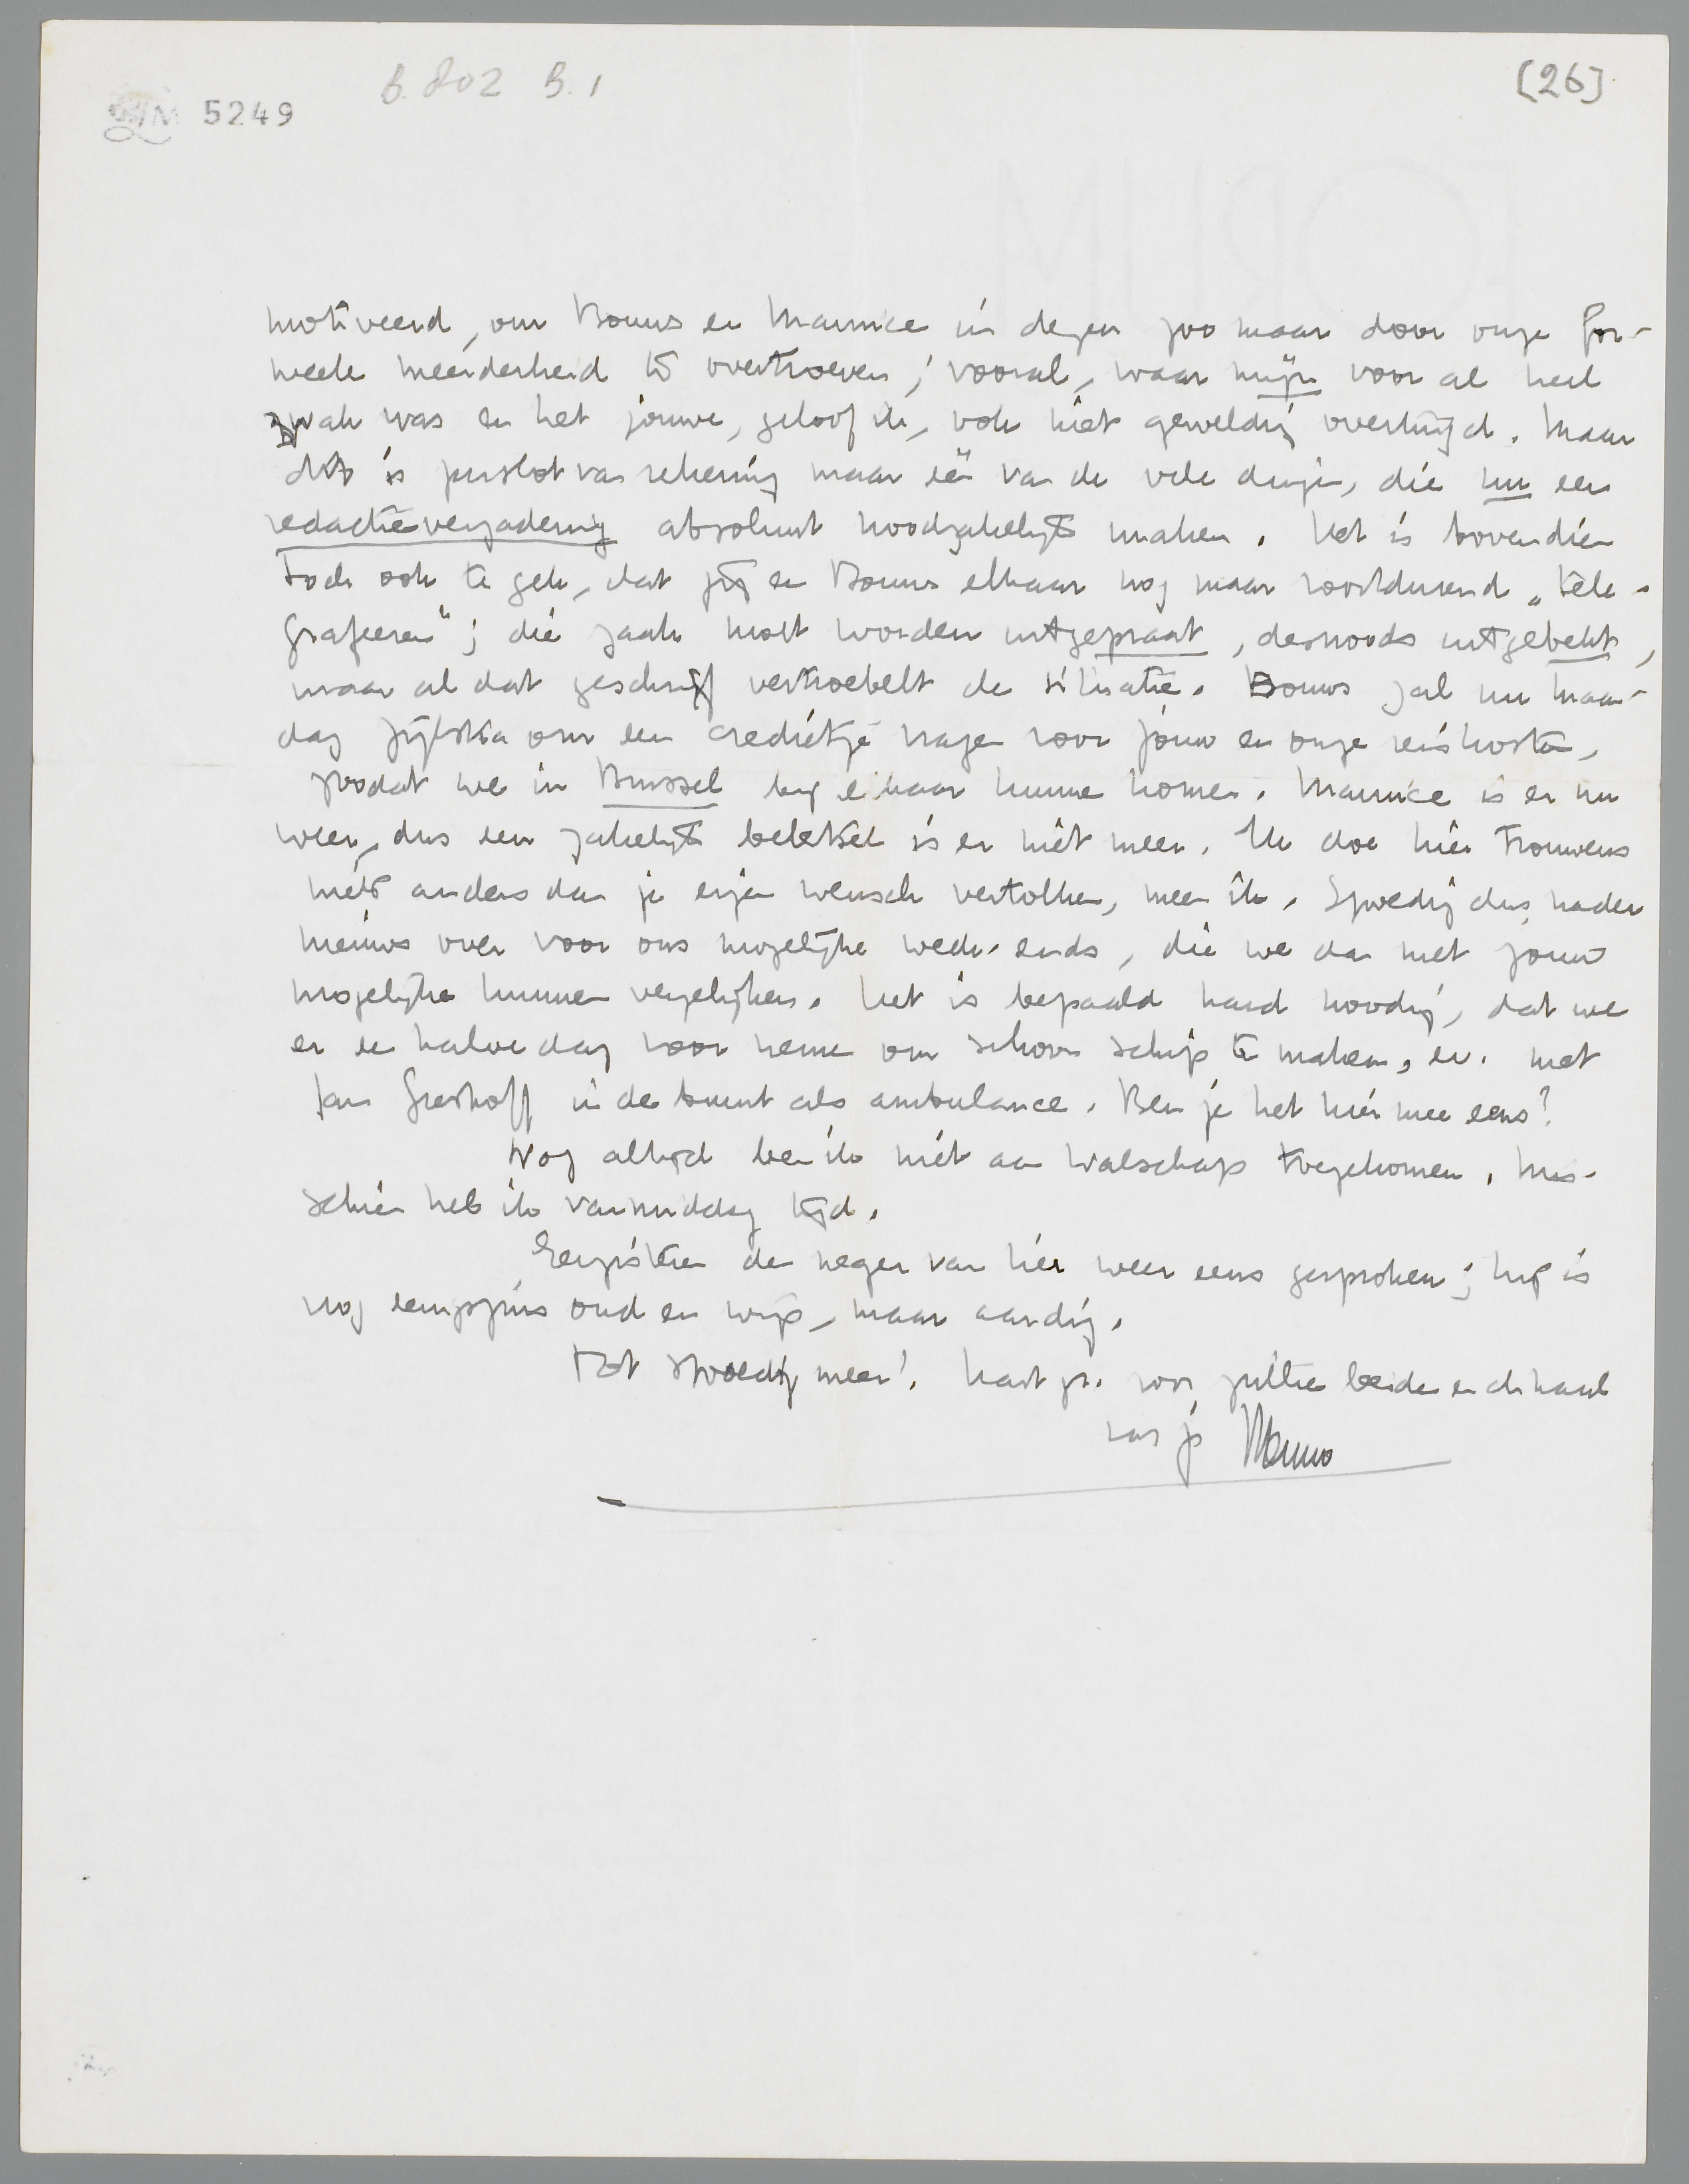 B 802 B. 1
[26]
5249
motiveerd, om Bouws en Maurice in dezen zoo maar door onze for-
meele meerderheid te overtroeven; vooral, waar mijn voor al heel
zwak was en het jouwe, geloof ik, ook niet geweldig overtuigd. Maar
dit is per slot van rekening maar één van de vele dingen, die nu een
redactievergadering absoluut noodzakelijk maken. Het is bovendien
toch ook te gek, dat jij en Bouws elkaar nog maar voortdurend „tele-
grafeeren"; die zaak moet worden uitgepraat, desnoods uitgebekt,
maar al dat geschrijf vertroebelt de situatie. Bouws zal nu Maan-
dag Zijlstra om een credietje vragen voor jouw en onze reiskosten,
zoodat we in Brussel bij elkaar kunnen komen. Maurice is er nu
weer, dus een zakelijk beletsel is er niet meer. Ik doe hier trouwens
niets anders dan je eigen wensch vertolken, meen ik. Spoedig dus nader
nieuws over voor ons mogelijke week-ends, die we dan met jouw
mogelijke kunnen vergelijken. Het is bepaald hard noodig, dat we
er een halve dag voor nemen om schoon schip te maken, ev. met
Jan Greshoff in de buurt als ambulance. Ben je het hier mee eens?
Nog altijd ben ik niet aan Walschap toegekomen. Mis-
schien heb ik vanmiddag tijd.
Eergisteren de neger van hier weer eens gesproken; hij is
nog eenigszins oud en wijs, maar aardig.
Tot spoedig meer! Hart. gr. voor jullie beiden en de hand
van je Menno